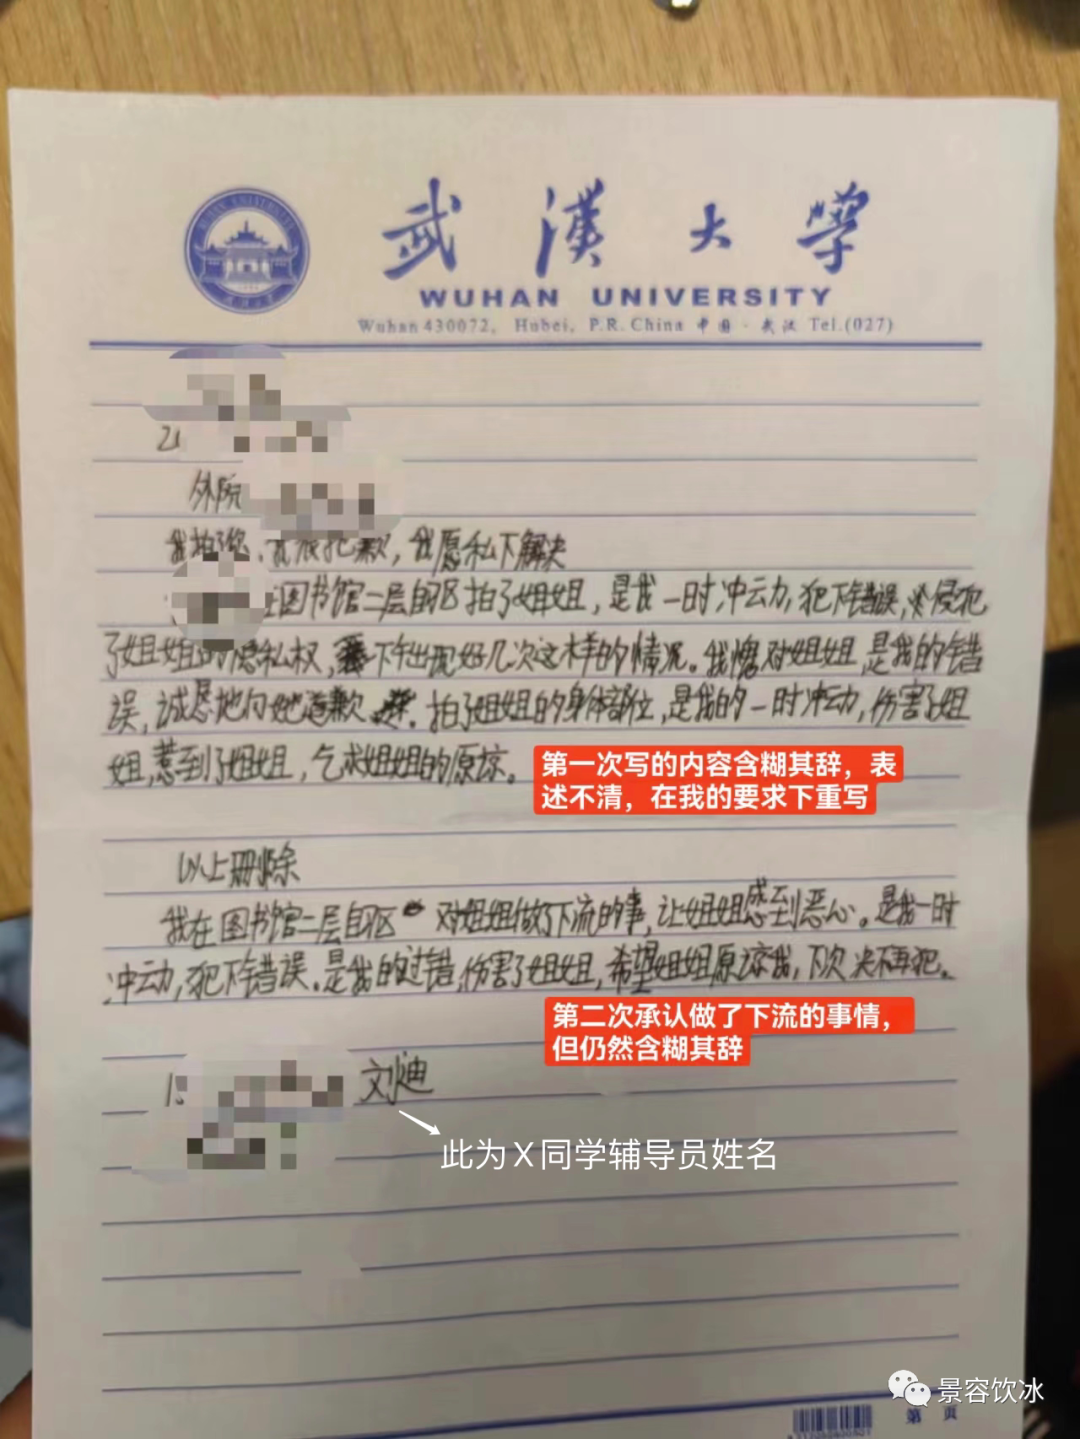 武漢大學
WUHAN UNIVERSITY
Wuhan 430072, Hubei, P.R. China 中国·武汉 Tel.(027)
外院
我拍了您、道歉,我愿私下解决
在图书馆二层自习区拍了姐姐,是我一时冲动,犯下错误,侵犯
了姐姐的隐私权,下午出现好几次这样的情况。我愧对姐姐,是我的错
误,诚恳地向她道歉。拍了姐姐的身体部位,是我的一时冲动,伤害了姐
姐,惹到了姐姐,乞求姐姐的原谅。
第一次写的内容含糊其辞,表
述不清,在我的要求下重写
以上删除
我在图书馆二层自习区对姐姐做了下流的事,让姐姐感到恶心。是我一时
冲动,犯下错误。是我的过错,伤害了姐姐,希望姐姐原谅我,下次决不再犯。
第二次承认做了下流的事情,
但仍然含糊其辞
刘迪
此为X同学辅导员姓名
景容饮冰
第 页